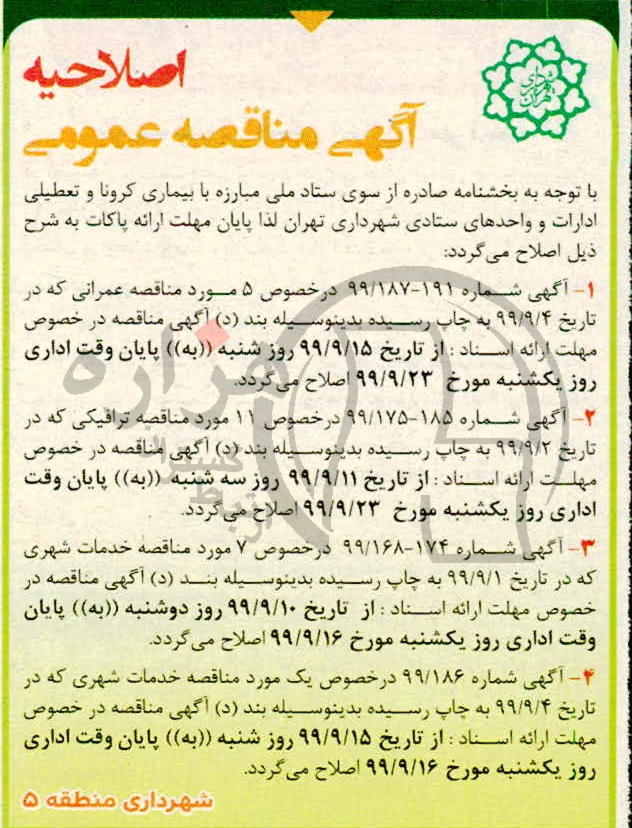 شهرداری تهران
اصلاحیه
آگهی مناقصه عمومی
با توجه به بخشنامه صادره از سوی ستاد ملی مبارزه با بیماری کرونا و تعطیلی
ادارات و واحدهای ستادی شهرداری تهران لذا پایان مهلت ارائه پاکات به شرح
ذیل اصلاح می‌گردد:
۱- آگهی شماره ۱۹۱-۹۹/۱۸۷ درخصوص ۵ مورد مناقصه عمرانی که در
تاریخ ۹۹/۹/۴ به چاپ رسیده بدینوسیله بند (د) آگهی مناقصه در خصوص
مهلت ارائه اسناد : از تاریخ ۹۹/۹/۱۵ روز شنبه ((به)) پایان وقت اداری
روز یکشنبه مورخ ۹۹/۹/۲۳ اصلاح می‌گردد.
۲- آگهی شماره ۱۸۵-۹۹/۱۷۵ درخصوص ۱۱ مورد مناقصه ترافیکی که در
تاریخ ۹۹/۹/۲ به چاپ رسیده بدینوسیله بند (د) آگهی مناقصه در خصوص
مهلت ارائه اسناد : از تاریخ ۹۹/۹/۱۱ روز سه شنبه ((به)) پایان وقت
اداری روز یکشنبه مورخ ۹۹/۹/۲۳ اصلاح می‌گردد.
۳- آگهی شماره ۱۷۴-۹۹/۱۶۸ درخصوص ۷ مورد مناقصه خدمات شهری
که در تاریخ ۹۹/۹/۱ به چاپ رسیده بدینوسیله بند (د) آگهی مناقصه در
خصوص مهلت ارائه اسناد : از تاریخ ۹۹/۹/۱۰ روز دوشنبه ((به)) پایان
وقت اداری روز یکشنبه مورخ ۹۹/۹/۱۶ اصلاح می‌گردد.
۴- آگهی شماره ۹۹/۱۸۶ درخصوص یک مورد مناقصه خدمات شهری که در
تاریخ ۹۹/۹/۴ به چاپ رسیده بدینوسیله بند (د) آگهی مناقصه در خصوص
مهلت ارائه اسناد : از تاریخ ۹۹/۹/۱۵ روز شنبه ((به)) پایان وقت اداری
روز یکشنبه مورخ ۹۹/۹/۱۶ اصلاح می‌گردد.
شهرداری منطقه ۵
هزاره